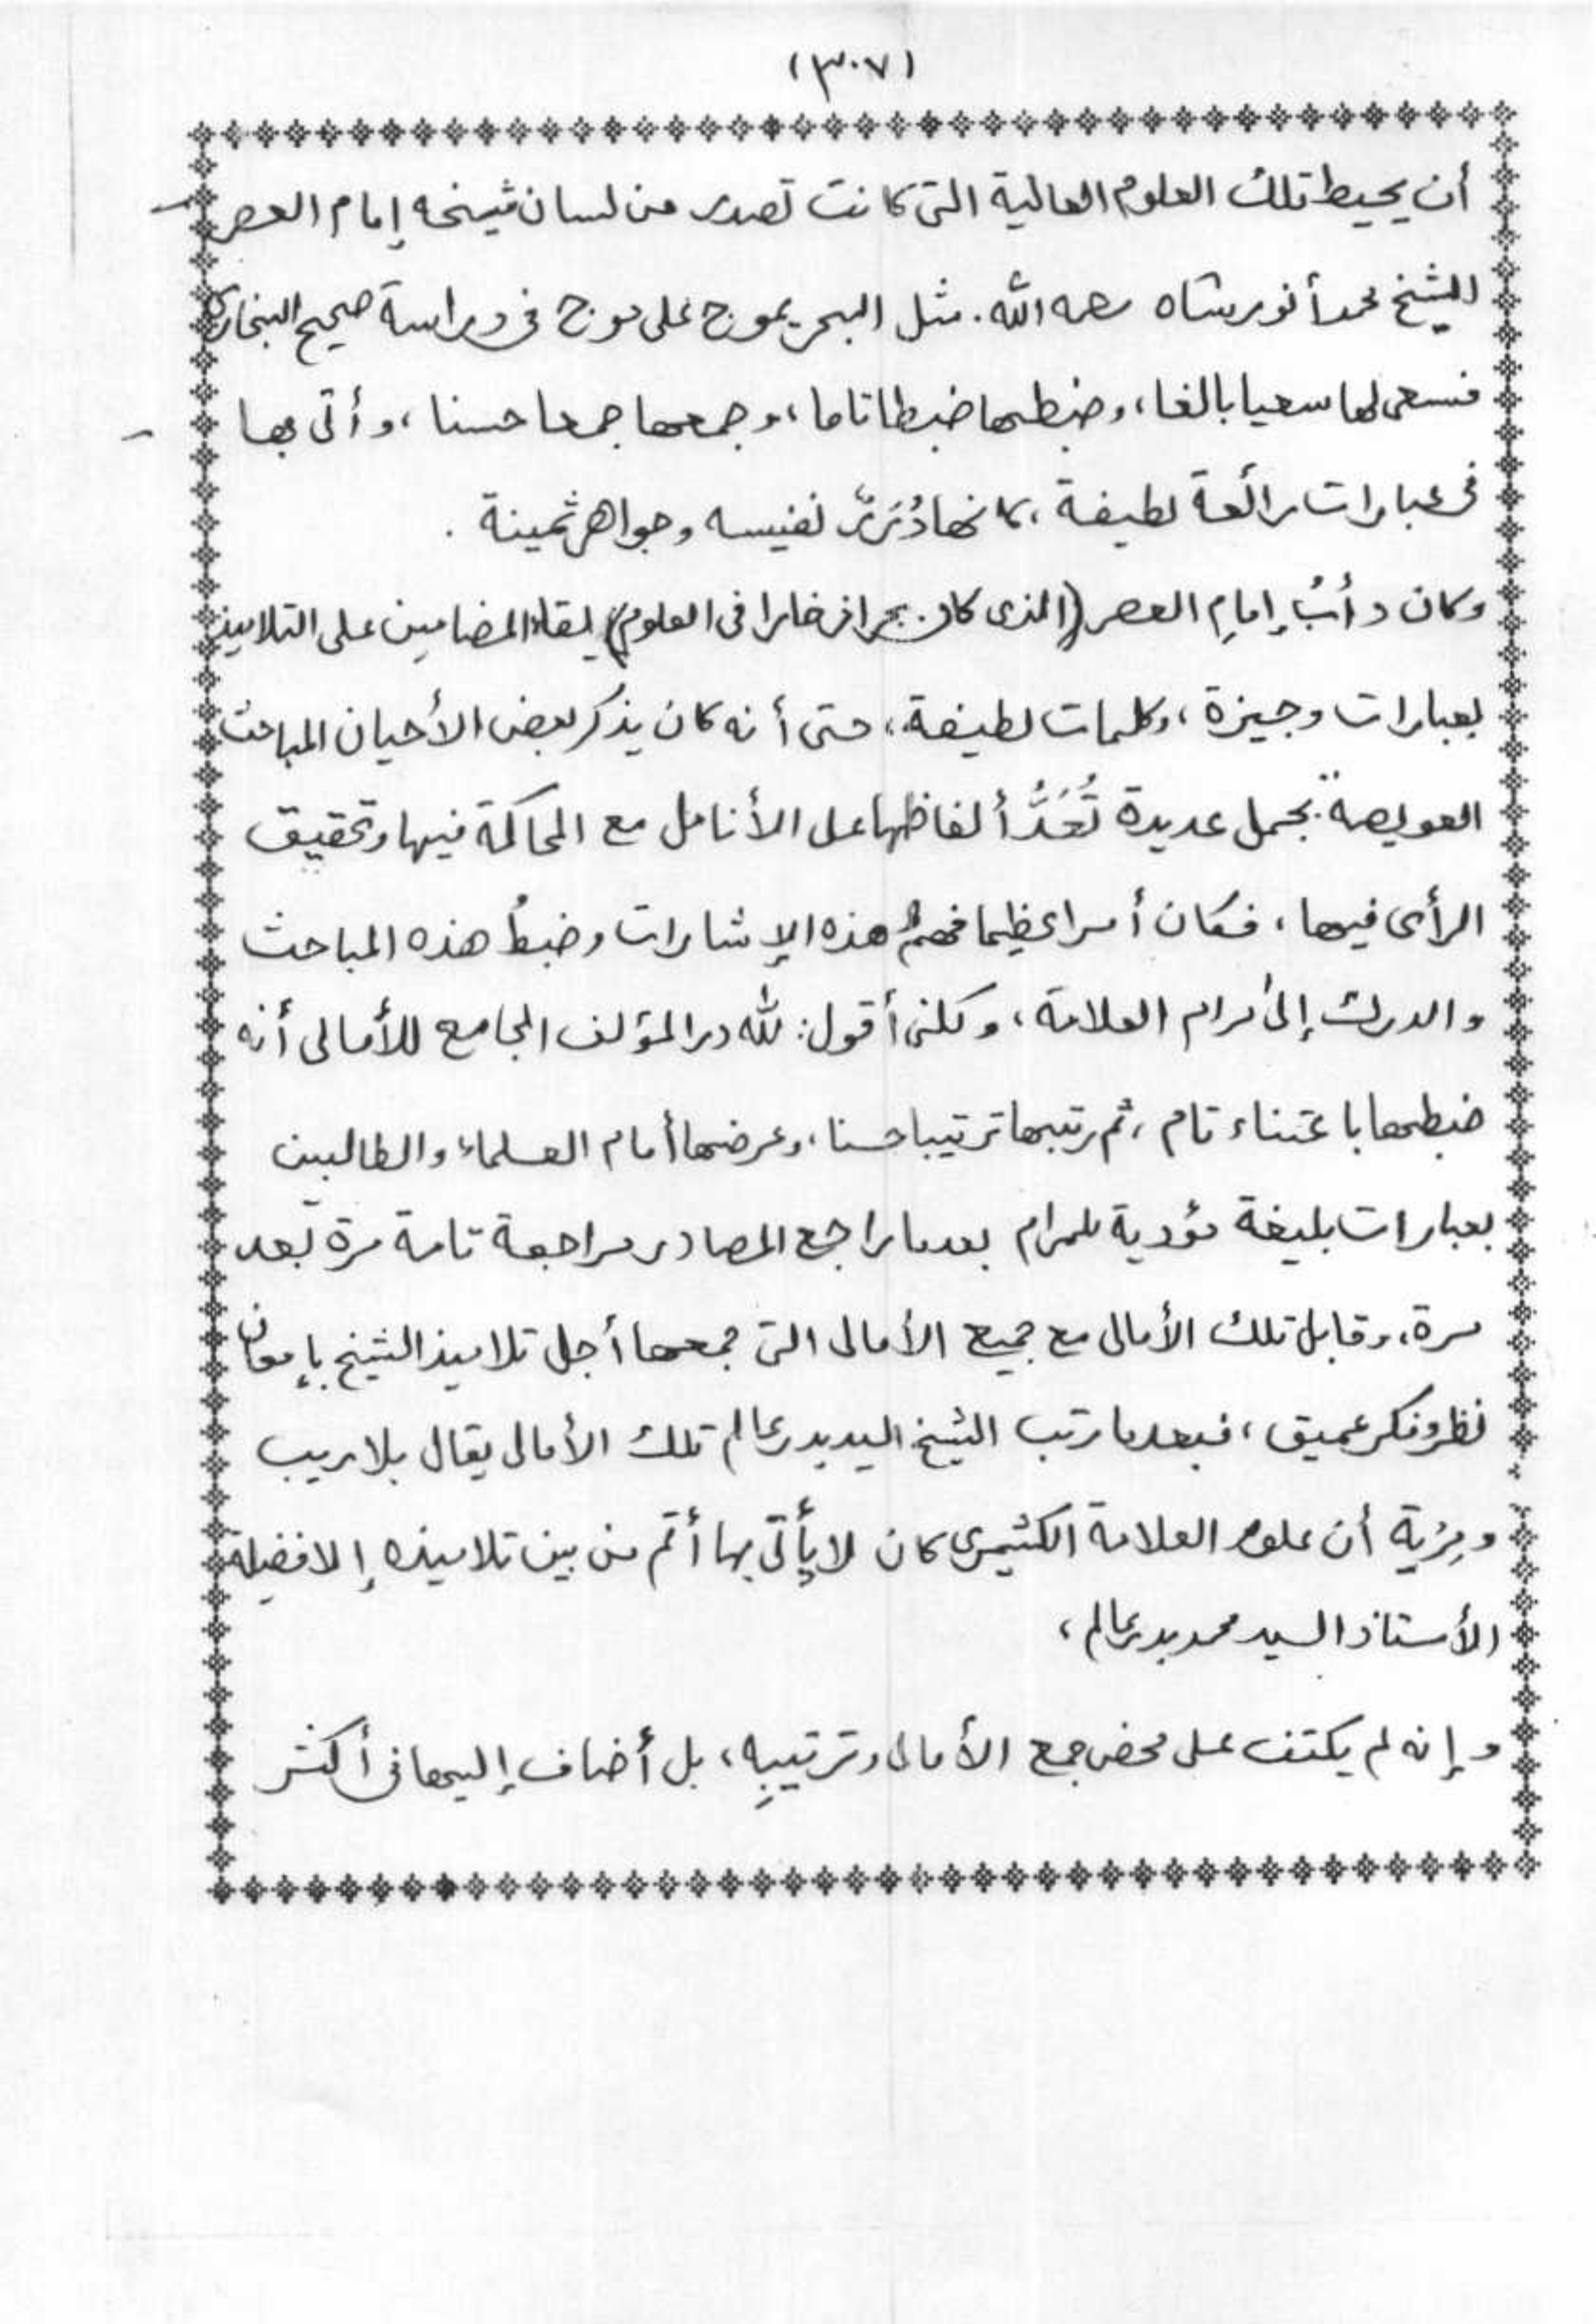 (٣٠٧)
أن يحيط تلك العلوم العالية التى كانت تصدر من لسان شيخه إمام العصر
الشيخ محمد أنور شاه رحمه الله. مثل البحر يموج على موج فى دراسة صحيح البخارى
فسعى لها سعيا بالغا، وضبطها ضبطا تاما، وجمعها جمعا حسنا، وأتى بها
فى عبارات رائعة لطيفة، كانها دُرَرٌ نفيسه وجواهر ثمينة .
وكان دأبُ إمامِ العصر (الذى كان بحرا زخارا فى العلوم) إلقاء المضامين على التلاميذ
بعبارات وجيزة، وكلمات لطيفة، حتى أنه كان يذكر بعض الأحيان المباحث
العويصة بجمل عديدة تُعَدُّ ألفاظها على الأنامل مع المحاكمة فيها وتحقيق
الرأى فيها، فكان أمرا عظيما فهمُ هذه الإشارات وضبطُ هذه المباحث
والدرك إلى مرام العلامة، ولكنى أقول: لله در المؤلف الجامع للأمالى أنه
ضبطها باعتناء تام، ثم رتبها ترتيبا حسنا، وعرضها أمام العلماء والطالبين
بعبارات بليغة مؤدية للمرام بعد ما راجع المصادر مراجعة تامة مرة بعد
مرة، وقابل تلك الأمالى مع جميع الأمالى التى جمعها أجل تلاميذ الشيخ بإمعان
نظر وفكر عميق، فبعد ما رتب الشيخ السيد بدر عالم تلك الأمالى يقال بلا ريب
ومِرْية أن علوم العلامة الكشميرى كان لا يأتى بها أتم من بين تلاميذه إلا فضيلة
الأستاذ السيد محمد بدر عالم،
وإنه لم يكتف على محض جمع الأمالى وترتيبِه، بل أضاف إليها فى أكثر